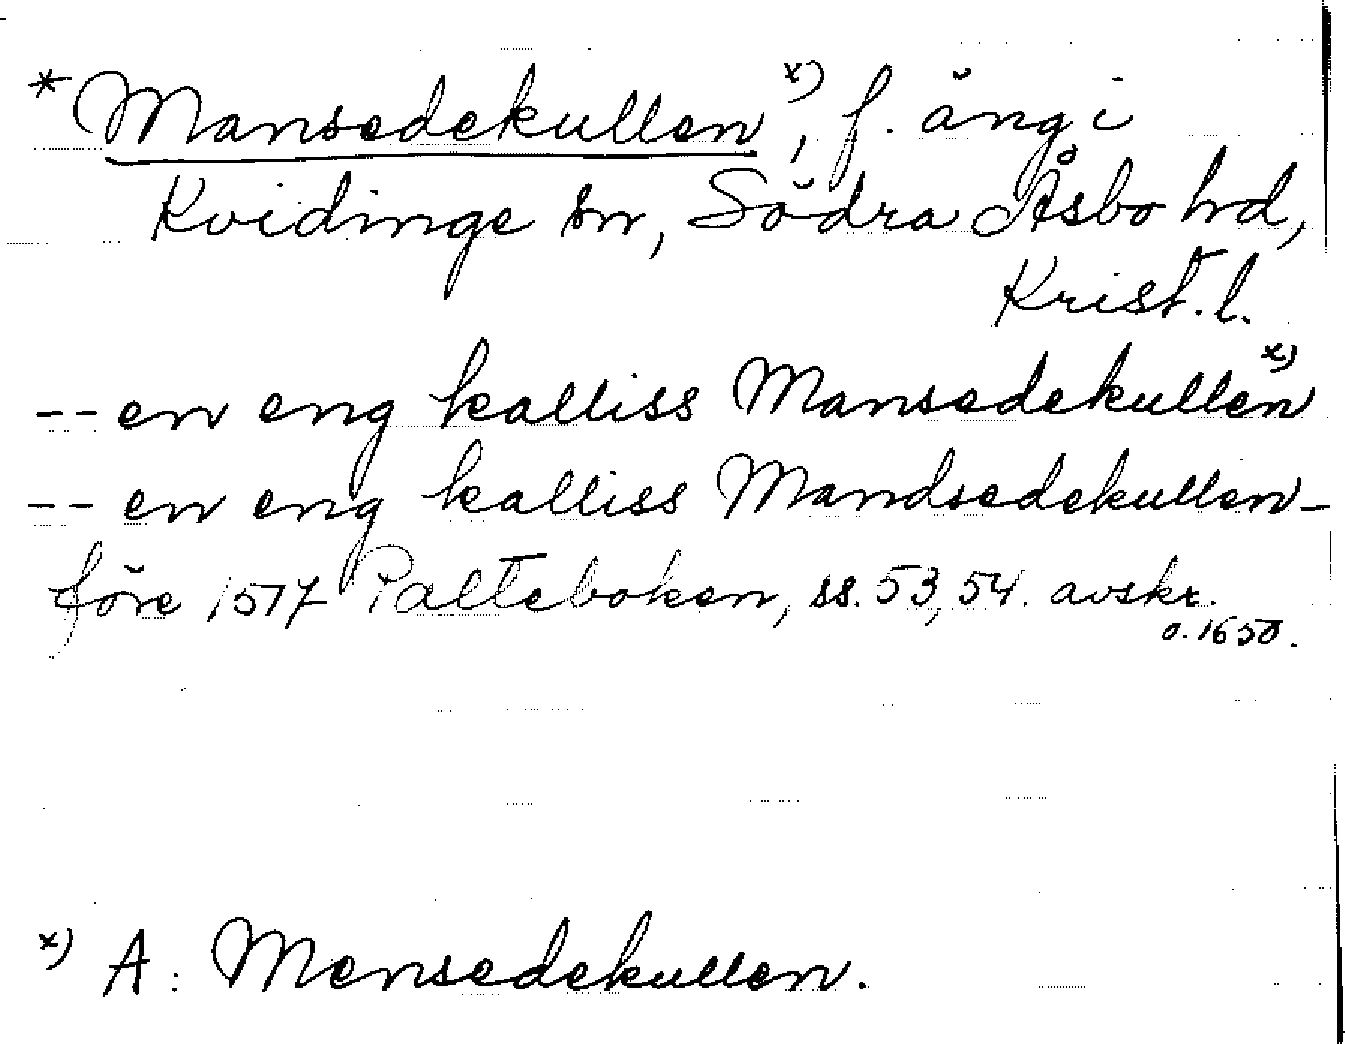 * Mansedekullen x), f. äng i
Kvidinge sn, Södra Åsbo hd,
Krist. l.
-- en eng kalliss Mansedekullen x)
-- en eng kalliss Mandsedekullen -
före 1517 Palteboken, ss. 53, 54. avskr.
o. 1650.
x) A: Mensedekullen.